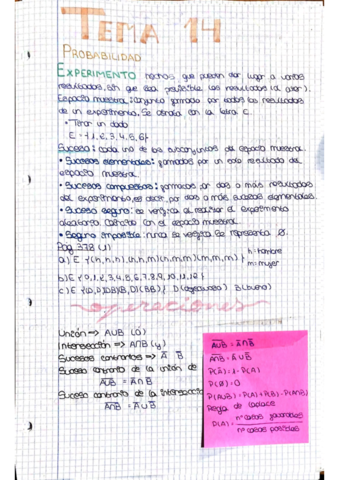 TEMA 14
PROBABILIDAD
EXPERIMENTO hechos que pueden dar lugar a varios
resultados, sin que sea posible los resultados (a azar).
Espacio muestral: conjunto formado por todos los resultados
de un experimento. Se denota con la letra E.
• Tirar un dado
E = {1, 2, 3, 4, 5, 6}
Suceso: cada uno de los subconjuntos del espacio muestral.
• Sucesos elementales: formados por un solo resultado del
espacio muestral.
• Sucesos compuestos: formados por dos o más resultados
del experimento, es decir, por dos o más sucesos elementales.
• Suceso seguro: se verifica al realizar el experimento
aleatorio. Coincide con el espacio muestral.
• Seguro imposible: nunca se verifica. Se representa Ø.
Pag 378 (1)
a) E {(h,n,n)(h,n,m)(n,m,m)(m,m,m)} h: hombre
m: mujer
b) E {0,1,2,3,4,5,6,7,8,9,10,11,12}
c) E {(D,D)(DB)(BD)(BB)} D(defectuoso) B(bueno)
operaciones
Unión => A∪B (ó)
Intersección => A∩B (y)
Sucesos contrarios => A̅ B̅
Suceso contrario de la unión de
A̅∪̅B̅ = A̅∩B̅
Suceso contrario de la intersección
A̅∩̅B̅ = A̅∪B̅
A̅∪̅B̅ = A̅∩B̅
A̅∩̅B̅ = A̅∪B̅
P(A̅) = 1 - P(A)
P(Ø) = 0
P(A∪B) = P(A) + P(B) - P(A∩B)
Regla de Laplace
P(A) = nº casos favorables
nº casos posibles